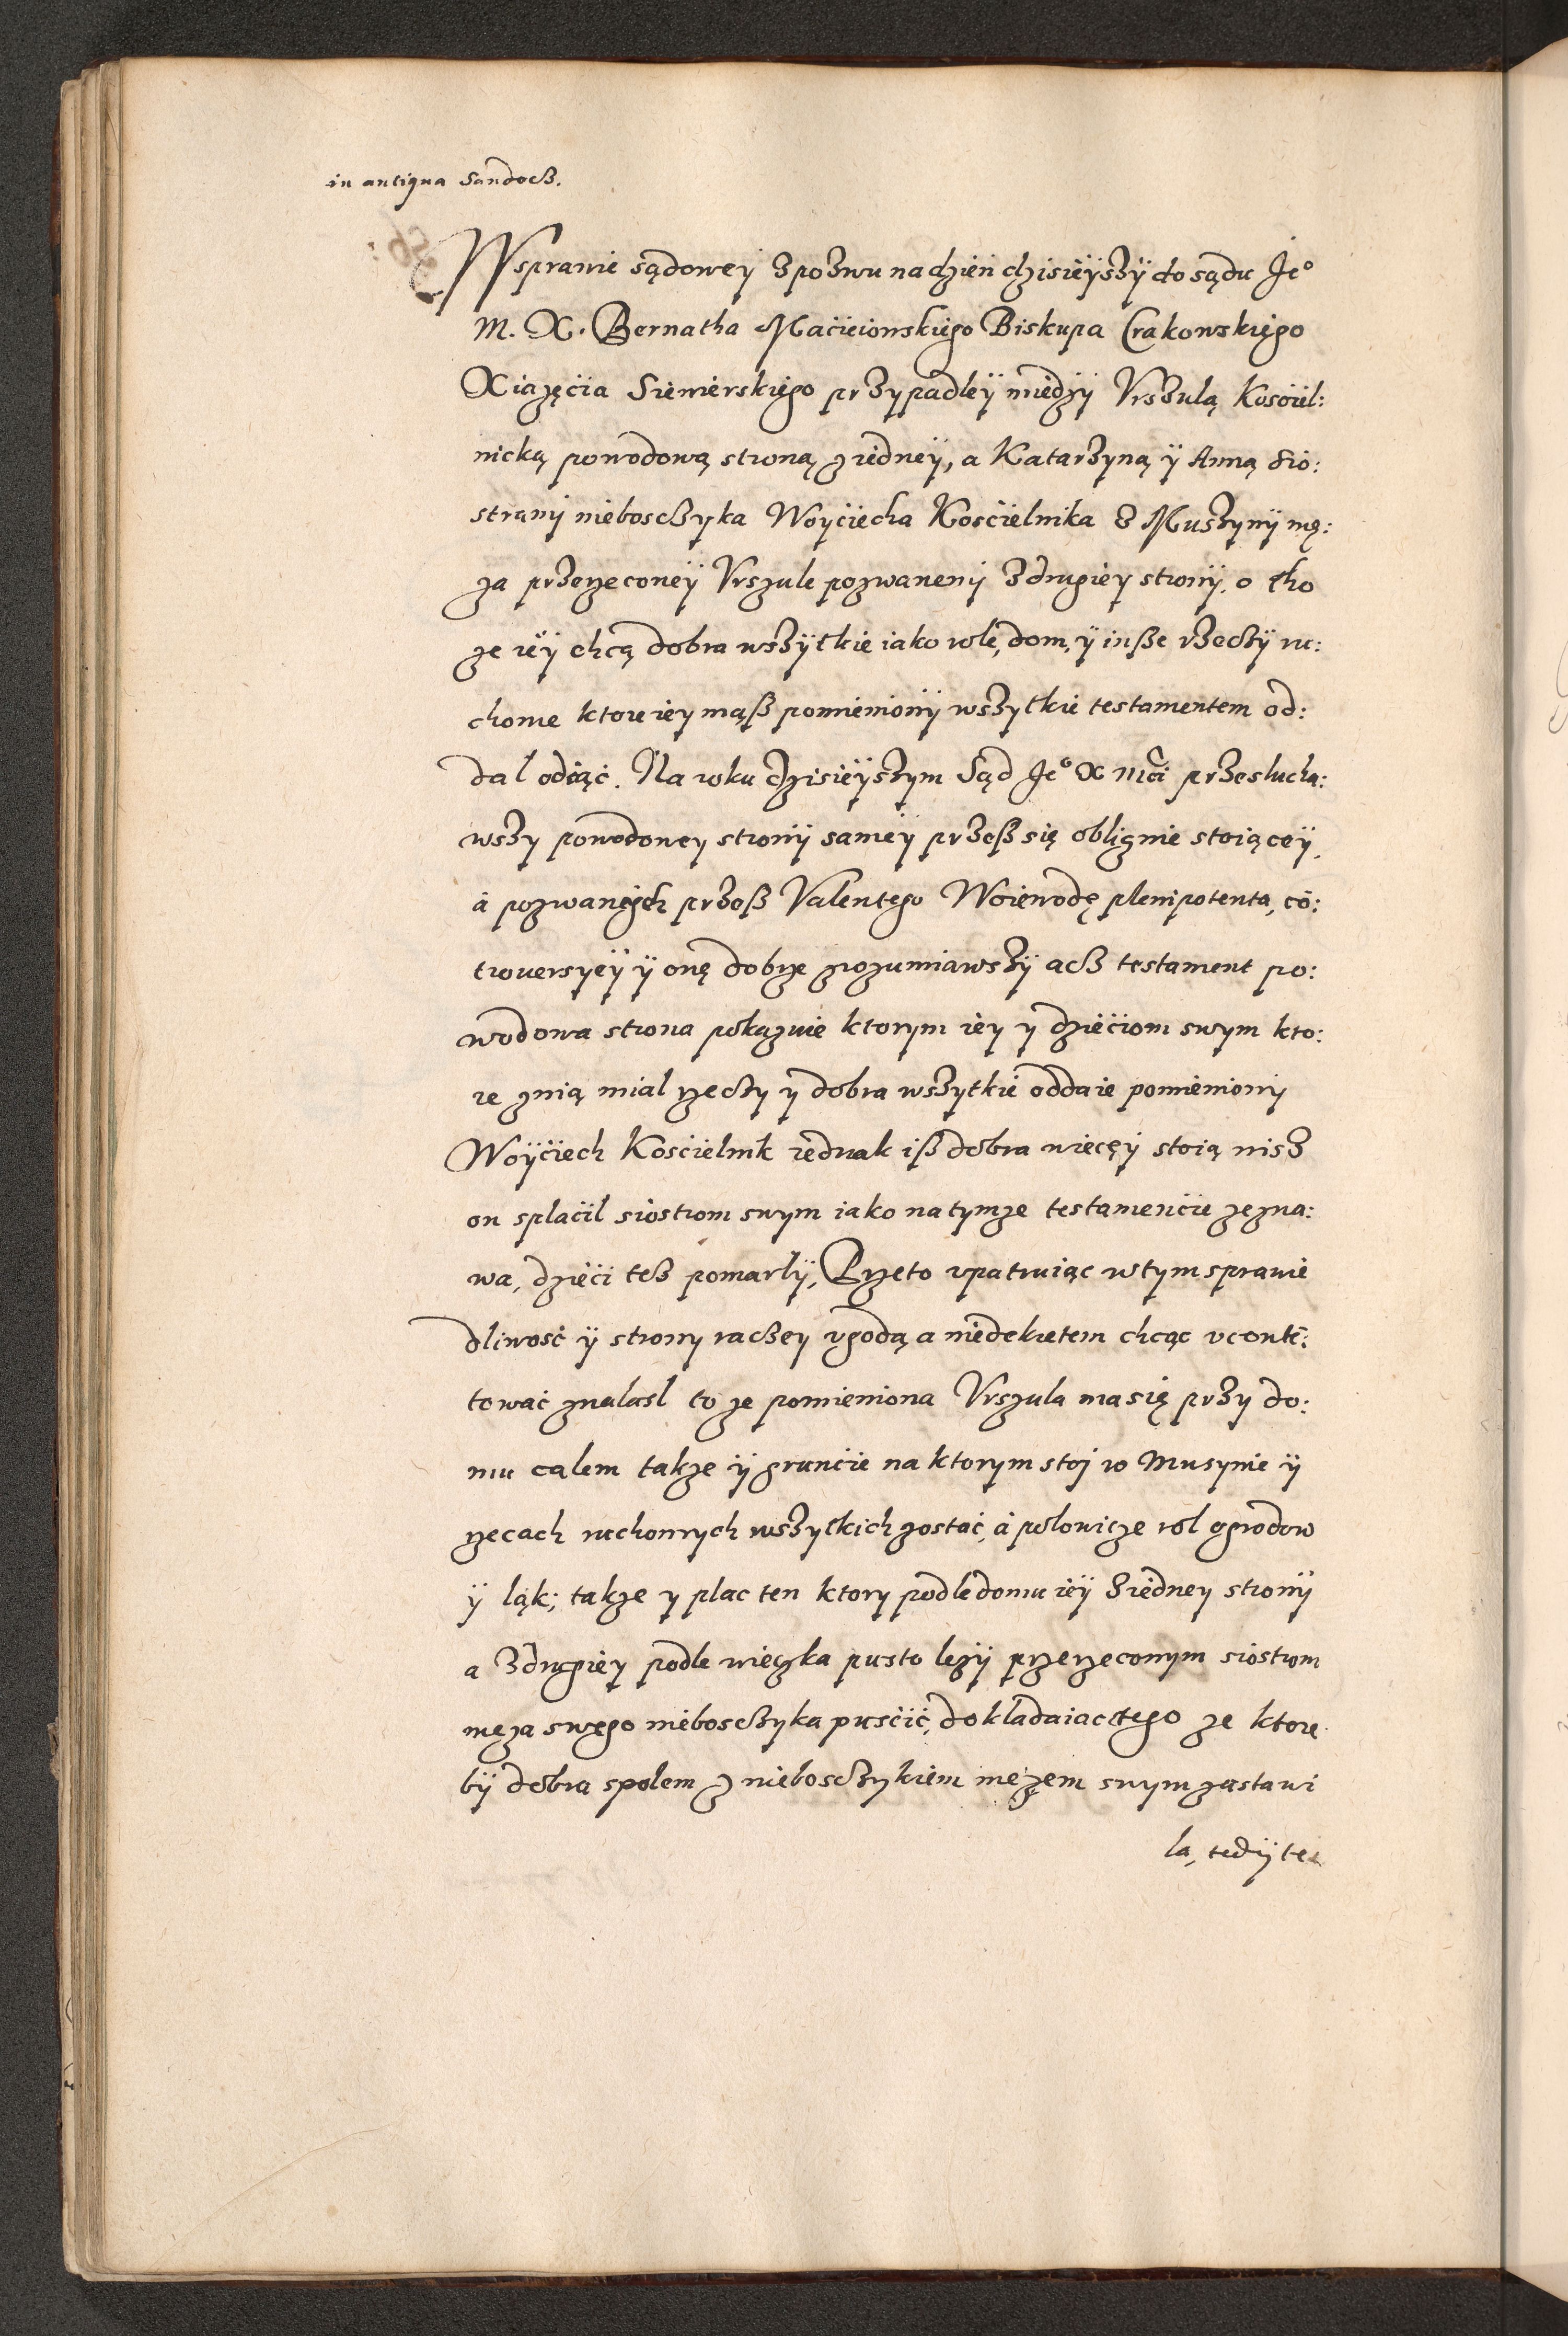 in antiqua Sandocz.
Wsprawie sądowey zpozwu na dzien dzisieyszy do sądu Je°
M. X. Bernatha Macieiowskiego Biskupa Crakowskiego
Xiazęcia Siewierskiego przypadley miedzy Vrszulą Kosciel:
nicką powodową stroną z iedney, a Katarzyną y Anną sio:
strami nieboszczyka Woyciecha Koscielnika z Muszyny mę:
za przerzeconey Vrszule pozwanemi z drugiey strony, o tho
ze iey chcą dobra wszytkie iako role, dom, y insze rzeczy ru:
chome ktore iey mąsz pomieniony wszytkie testamentem od:
dal odiąć. Na roku dzisieyszym Sąd Je° X Mci przeslucha:
wszy powodowey strony samey przesz się oblignie stoiącey,
a pozwanych przesz Valentego Woiewodę plenipotenta, cō:
trouersyey y onę dobrze zrozumiawszy acz testament po:
wodowa strona pokazuie ktorym iey y dzieciom swym kto:
re znią mial rzeczy y dobra wszytkie oddaie pomieniony
Woyciech Koscielnik iednak isz dobra więcey stoią nisz
on splacil siostrom swym iako na tymze testamencie zezna:
wa, dzieci tesz pomarly, Przeto vpatruiąc wtym sprawie
dliwość y strony raczey vgodą a niedekretem chcąc vcontē:
tować znalasl to ze pomieniona Vrszula ma się przy do:
mu calem takze y gruncie na ktorym stoj w Musynie y
rzecach ruchomych wszytkich zostać, a polowicze rol ogrodow
y ląk; takze y plac ten ktory podle domu iey z iedney strony
a z drugiey podle wieczka pusto lezy przerzeconym siostrom
męza swego nieboszczyka puscić, dokladaiac tego ze ktore
by dobra spolem z nieboszczykiem mezem swym zastawi
la, tedy te